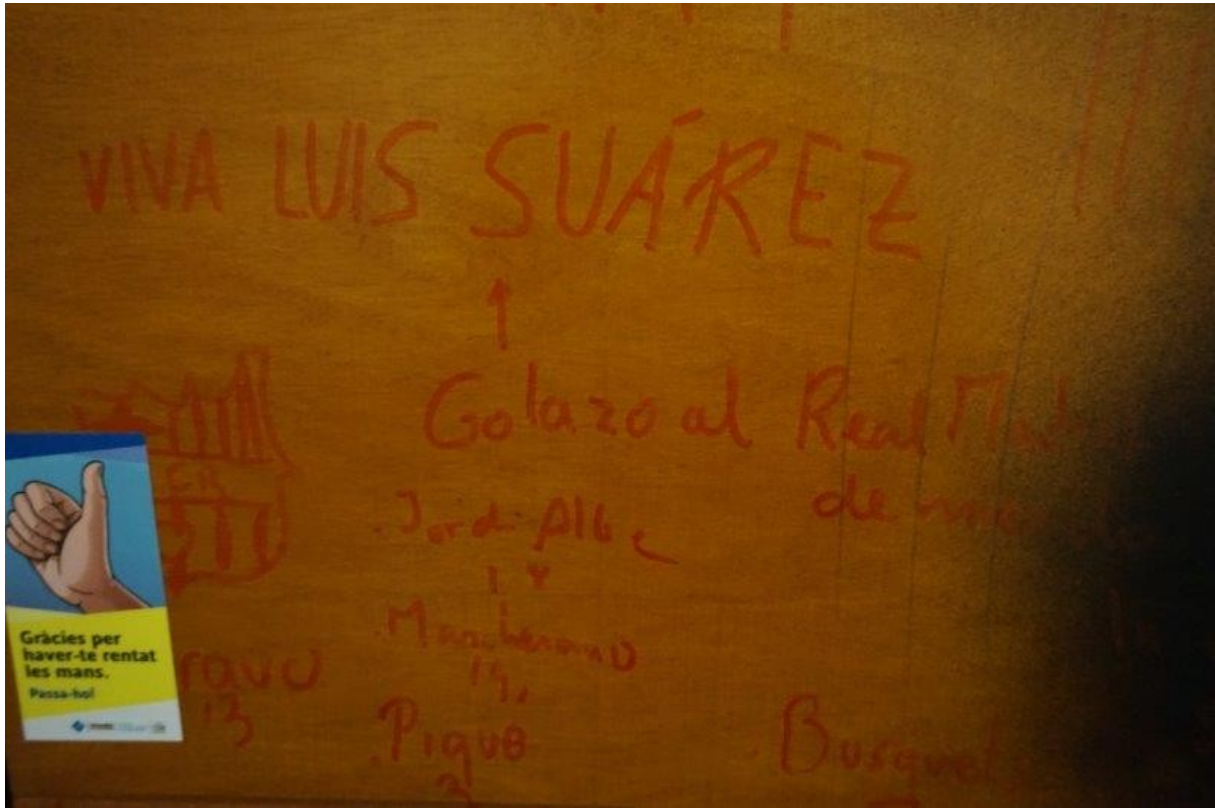 VIVA LUIS SUÁREZ
Golazo al Real
de
Jordi Alba
Mascherano
14
Pique
3
Busquets
13
Gràcies per
haver-te rentat
les mans.
Passa-ho!